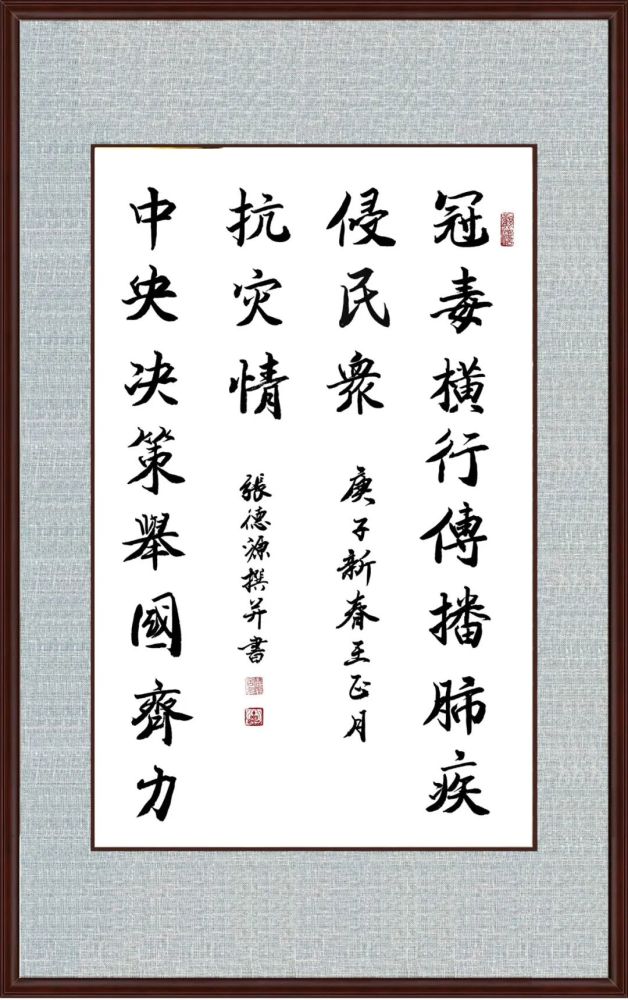 冠毒橫行傳播肺疾
侵民衆
庚子新春王正月
中央决策舉國齊力
抗灾情
張德源撰并書